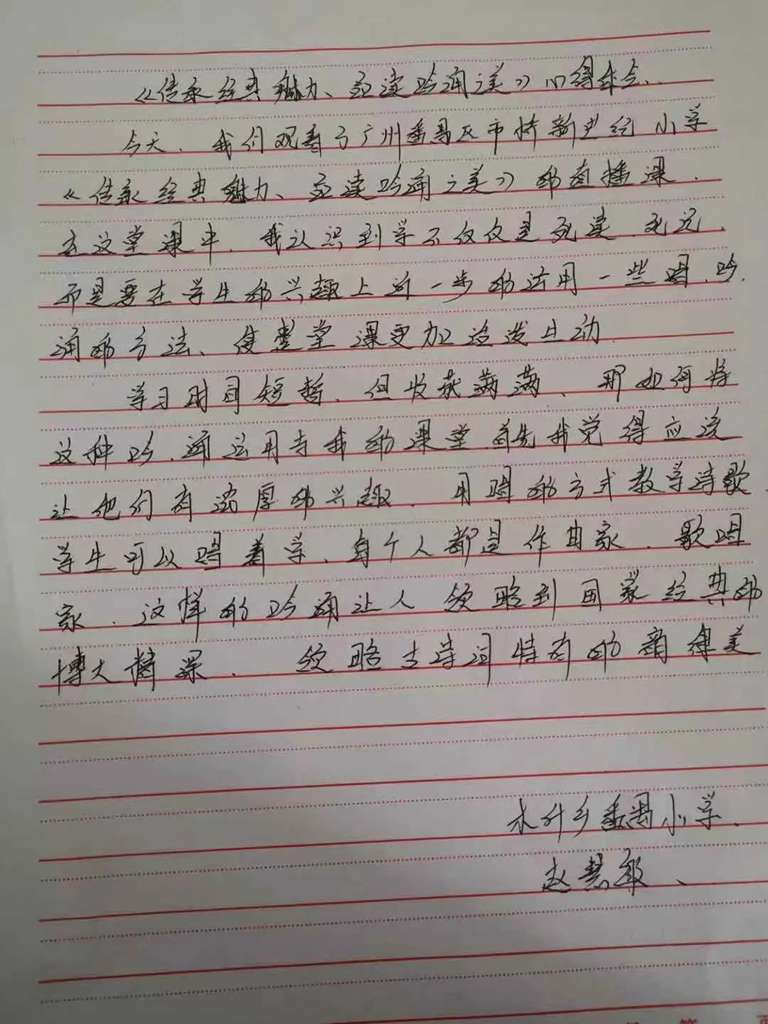 《传承经典魅力、乐读吟诵之美》心得体会、
今天、我们观看了广州番禺区市桥新世纪小学
《传承经典魅力、乐读吟诵之美》的直播课.
在这堂课中.我认识到学不仅仅是死读 死记.
而是要在学生的兴趣上进一步的运用一些唱.吟.
诵的方法、使整堂课更加活泼生动
学习时间短暂.但收获满满、那如何将
这种吟.诵运用于我的课堂首先我觉得应该
让他们有浓厚的兴趣.用唱的方式教学诗歌
学生可以唱着学.每个人都是作曲家.歌唱
家.这样的吟诵让人领略到国家经典的
博大精深.领略古诗词特有的韵律美
小学.
赵慧敏、